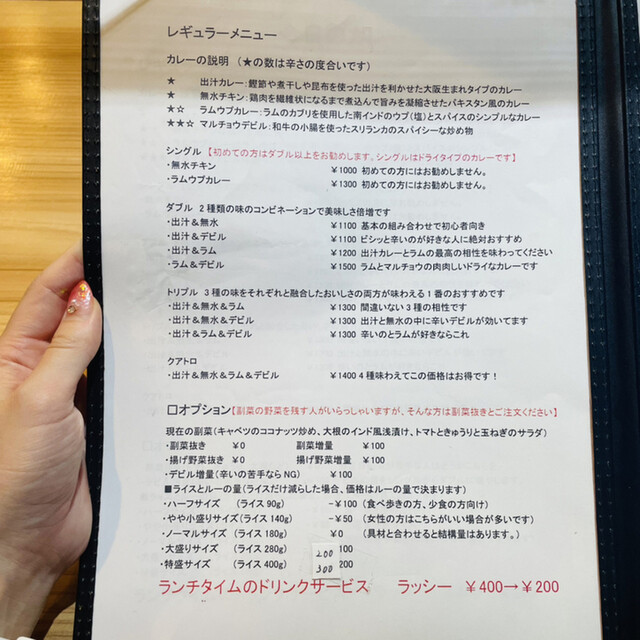 レギュラーメニュー
カレーの説明 （★の数は辛さの度合いです）
★ 出汁カレー：鰹節や煮干しや昆布を使った出汁を利かせた大阪生まれタイプのカレー
★ 無水チキン：鶏肉を繊維状になるまで煮込んで旨みを凝縮させたパキスタン風のカレー
★☆ ラムウプカレー：ラムのカブリを使用した南インドのウプ（塩）とスパイスのシンプルなカレー
★★☆ マルチョウデビル：和牛の小腸を使ったスリランカのスパイシーな炒め物
シングル 【初めての方はダブル以上をお勧めします。シングルはドライタイプのカレーです】
・無水チキン ￥1000 初めての方にはお勧めしません。
・ラムウプカレー ￥1300 初めての方にはお勧めしません。
ダブル 2種類の味のコンビネーションで美味しさ倍増です
・出汁＆無水 ￥1100 基本の組み合わせで初心者向き
・出汁＆デビル ￥1100 ビシッと辛いのが好きな人に絶対おすすめ
・出汁＆ラム ￥1200 出汁カレーとラムの最高の相性を味わってください
・ラム＆デビル ￥1500 ラムとマルチョウの肉肉しいドライなカレーです
トリプル 3種の味をそれぞれと融合したおいしさの両方が味わえる！番のおすすめです
・出汁＆無水＆ラム ￥1300 間違いない3種の相性です
・出汁＆無水＆デビル ￥1300 出汁と無水の中に辛デビルが効いてます
・出汁＆ラム＆デビル ￥1300 辛いのとラムが好きならこれ
クアトロ
・出汁＆無水＆ラム＆デビル ￥1400 4種味わえてこの価格はお得です！
□オプション【副菜の野菜を残す人がいらっしゃいますが、そんな方は副菜抜きとご注文ください】
現在の副菜（キャベツのココナッツ炒め、大根のインド風浅漬け、トマトときゅうりと玉ねぎのサラダ）
・副菜抜き ￥0 副菜増量 ￥100
・揚げ野菜抜き ￥0 揚げ野菜増量 ￥100
・デビル増量（辛いの苦手ならNG） ￥100
■ライスとルーの量（ライスだけ減らした場合、価格はルーの量で決まります）
・ハーフサイズ （ライス90g） -￥100 （食べ歩きの方、少食の方向け）
・やや小盛りサイズ（ライス140g） -￥50 （女性の方はこちらがいい場合が多いです）
・ノーマルサイズ （ライス180g） ￥0 （具材と合わせると結構量はあります。）
・大盛りサイズ （ライス280g） 200 100
・特盛サイズ （ライス400g） 300 200
ランチタイムのドリンクサービス ラッシー ￥400→￥200